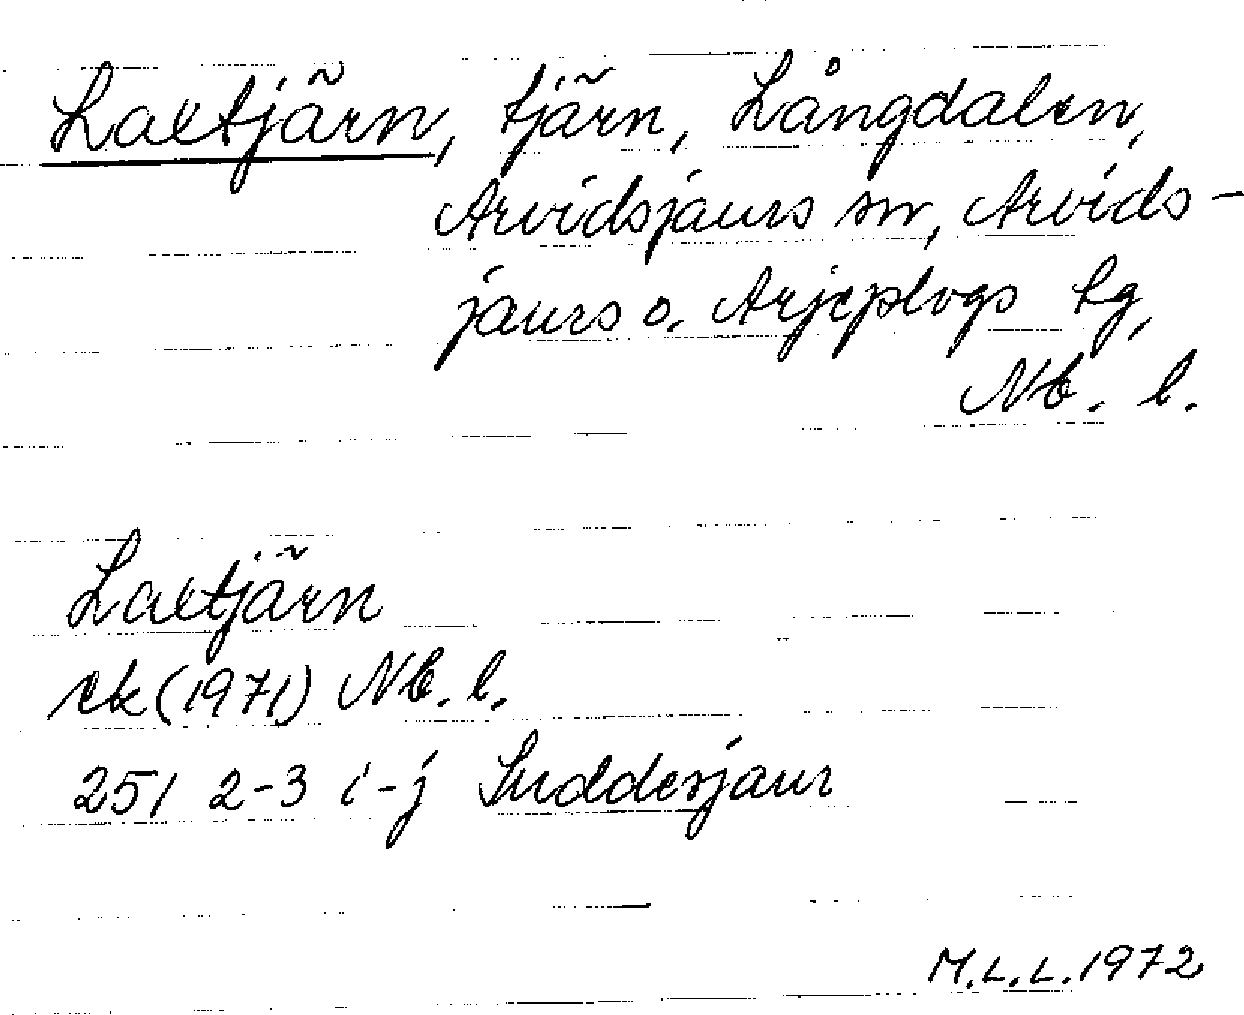 Laxtjärn, tjärn, Långdalen,
Arvidsjaurs sn, Arvids-
jaurs o. Arjeplogs tg,
Nb. l.
Laxtjärn
ek (1971) Nb. l.
251 2-3 i-j Suddesjaur
M.L.L. 1972